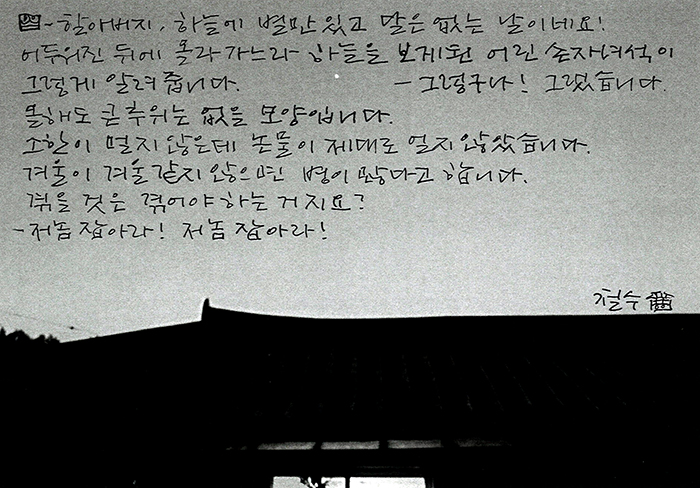 - 할아버지, 하늘에 별만 있고 달은 없는 날이네요!
어두워진 뒤에 올라가느라 하늘을 보게된 어린 손자녀석이
그렇게 알려줍니다. - 그렇구나! 그렇습니다.
올해도 큰 추위는 없을 모양입니다.
소한이 멀지 않은데 논물이 제대로 얼지 않았습니다.
겨울이 겨울 같지 않으면 병이 많다고 합니다.
겪을 것은 겪어야 하는 거지요?
- 저놈 잡아라! 저놈 잡아라!
철수